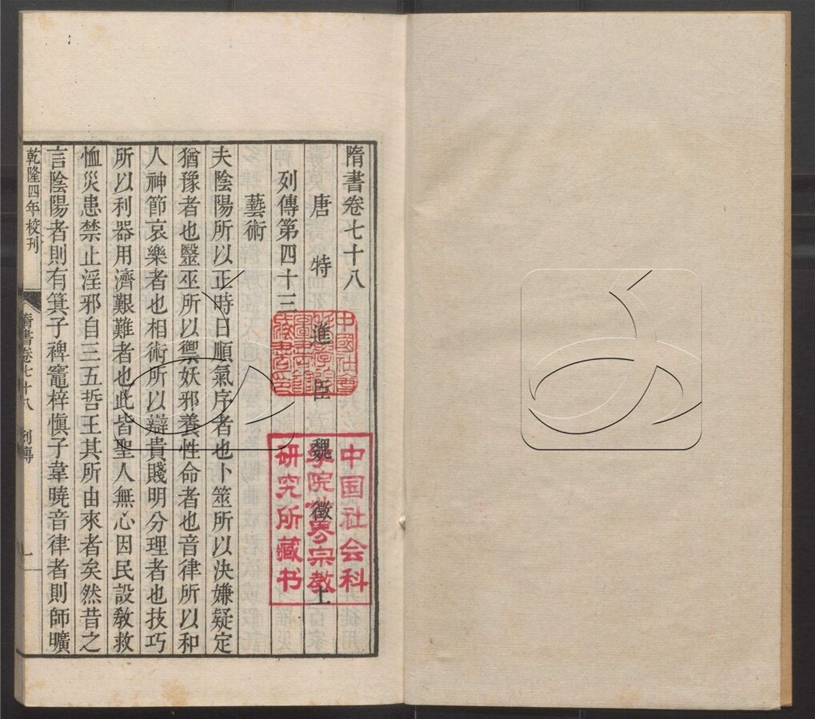 隋書卷七十八
唐特進臣魏徵上
列傳第四十三
藝術
夫陰陽所以正時日順氣序者也卜筮所以決嫌疑定
猶豫者也毉巫所以禦妖邪養性命者也音律所以和
人神節哀樂者也相術所以辯貴賤明分理者也技巧
所以利器用濟艱難者也此皆聖人無心因民設敎救
恤災患禁止淫邪自三五哲王其所由來者矣然昔之
言陰陽者則有箕子裨竈梓慎子韋曉音律者則師曠
乾隆四年校刊
隋書卷七十八 列傳
一
中国社会科
学院世界宗教
研究所藏书